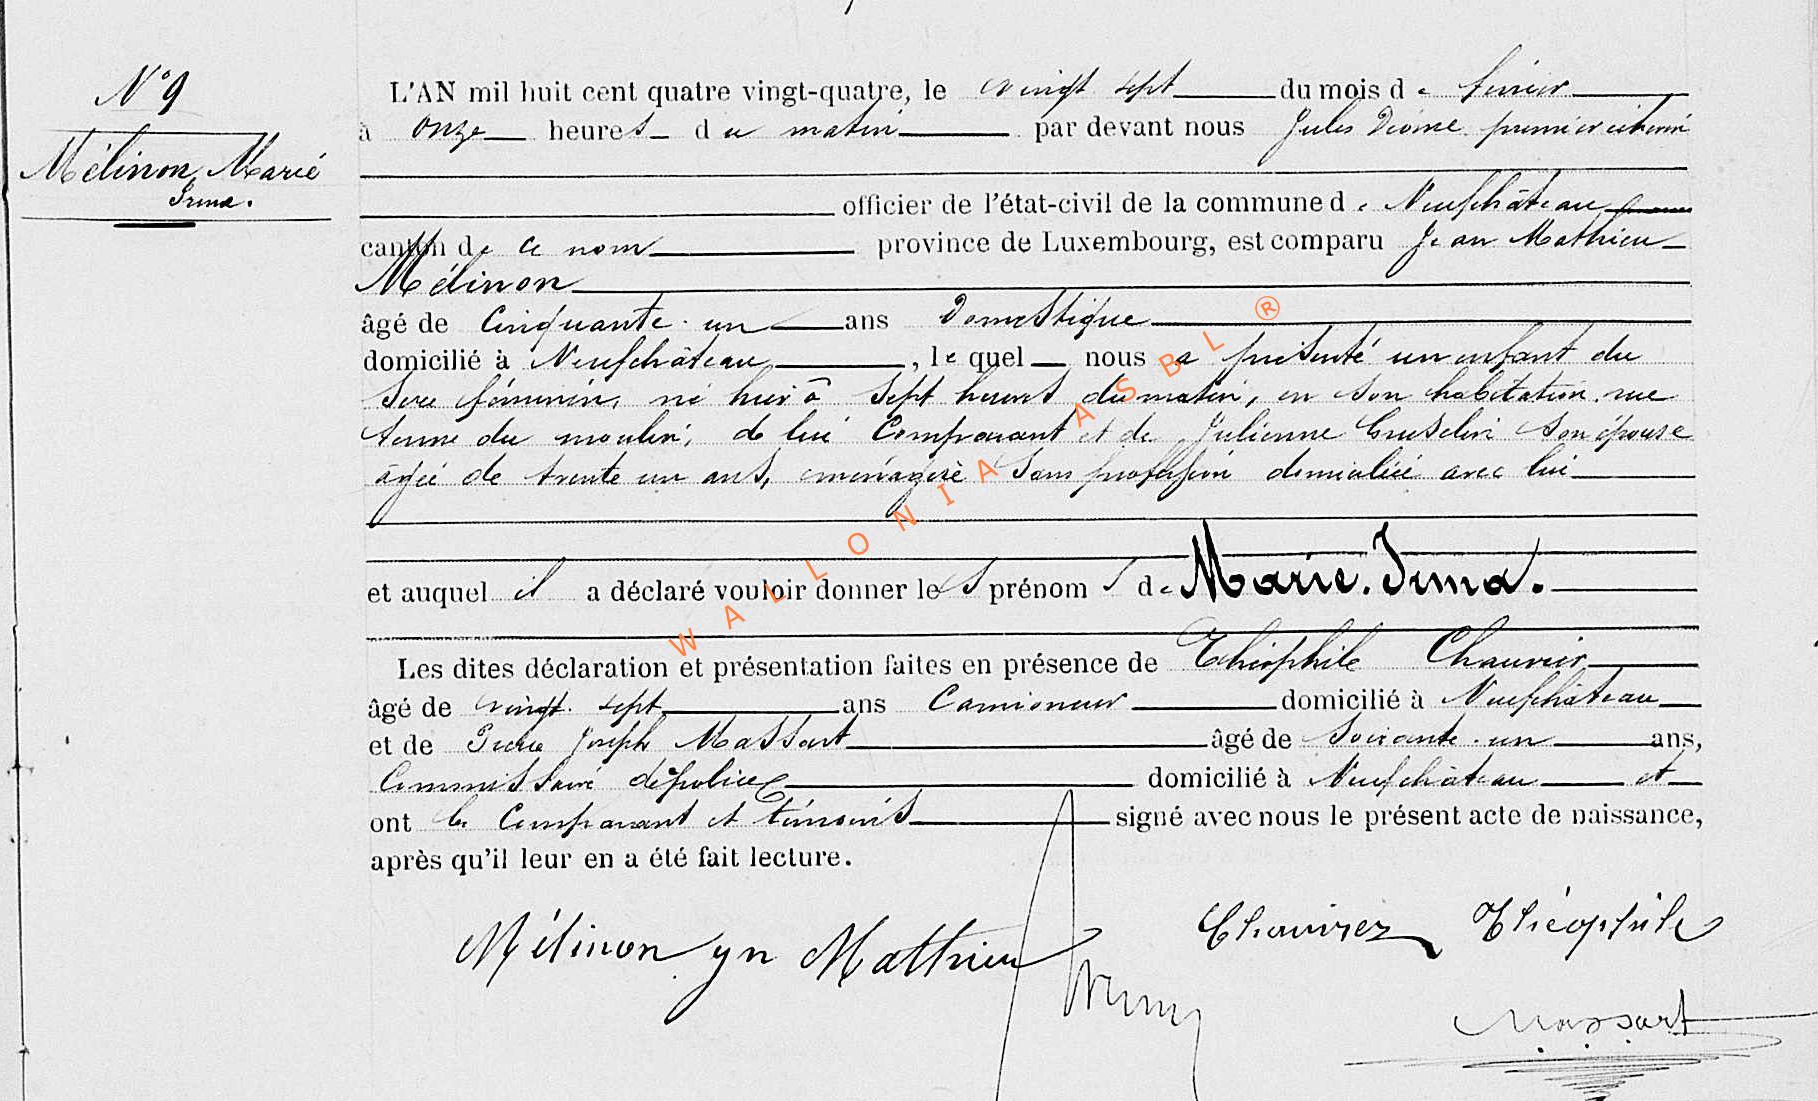 N° 9
Mélinon, Marie
Irma.
L'AN mil huit cent quatre vingt-quatre, le vingt sept du mois de février
à onze heures du matin par devant nous Jules premier échevin
officier de l'état-civil de la commune de Neufchâteau
canton de ce nom province de Luxembourg, est comparu Jean Mathieu
Mélinon
âgé de cinquante-un ans Domestique
domicilié à Neufchâteau, lequel nous a présenté un enfant du
sexe féminin, né hier à sept heures du matin, en son habitation, rue
du moulin, de lui Comparant et de Julienne son épouse
âgée de trente un ans, ménagère sans profession domiciliée avec lui
et auquel il a déclaré vouloir donner les prénoms de Marie. Irma.
Les dites déclaration et présentation faites en présence de Théophile
âgé de vingt-sept ans Camioneur domicilié à Neufchâteau
et de Pierre Joseph Massart âgé de soixante-un ans,
Commissaire de police domicilié à Neufchâteau et
ont le Comparant et témoins signé avec nous le présent acte de naissance,
après qu'il leur en a été fait lecture.
Mélinon Mathieu
Théophile
Massart
WALLONIA ASBL ®